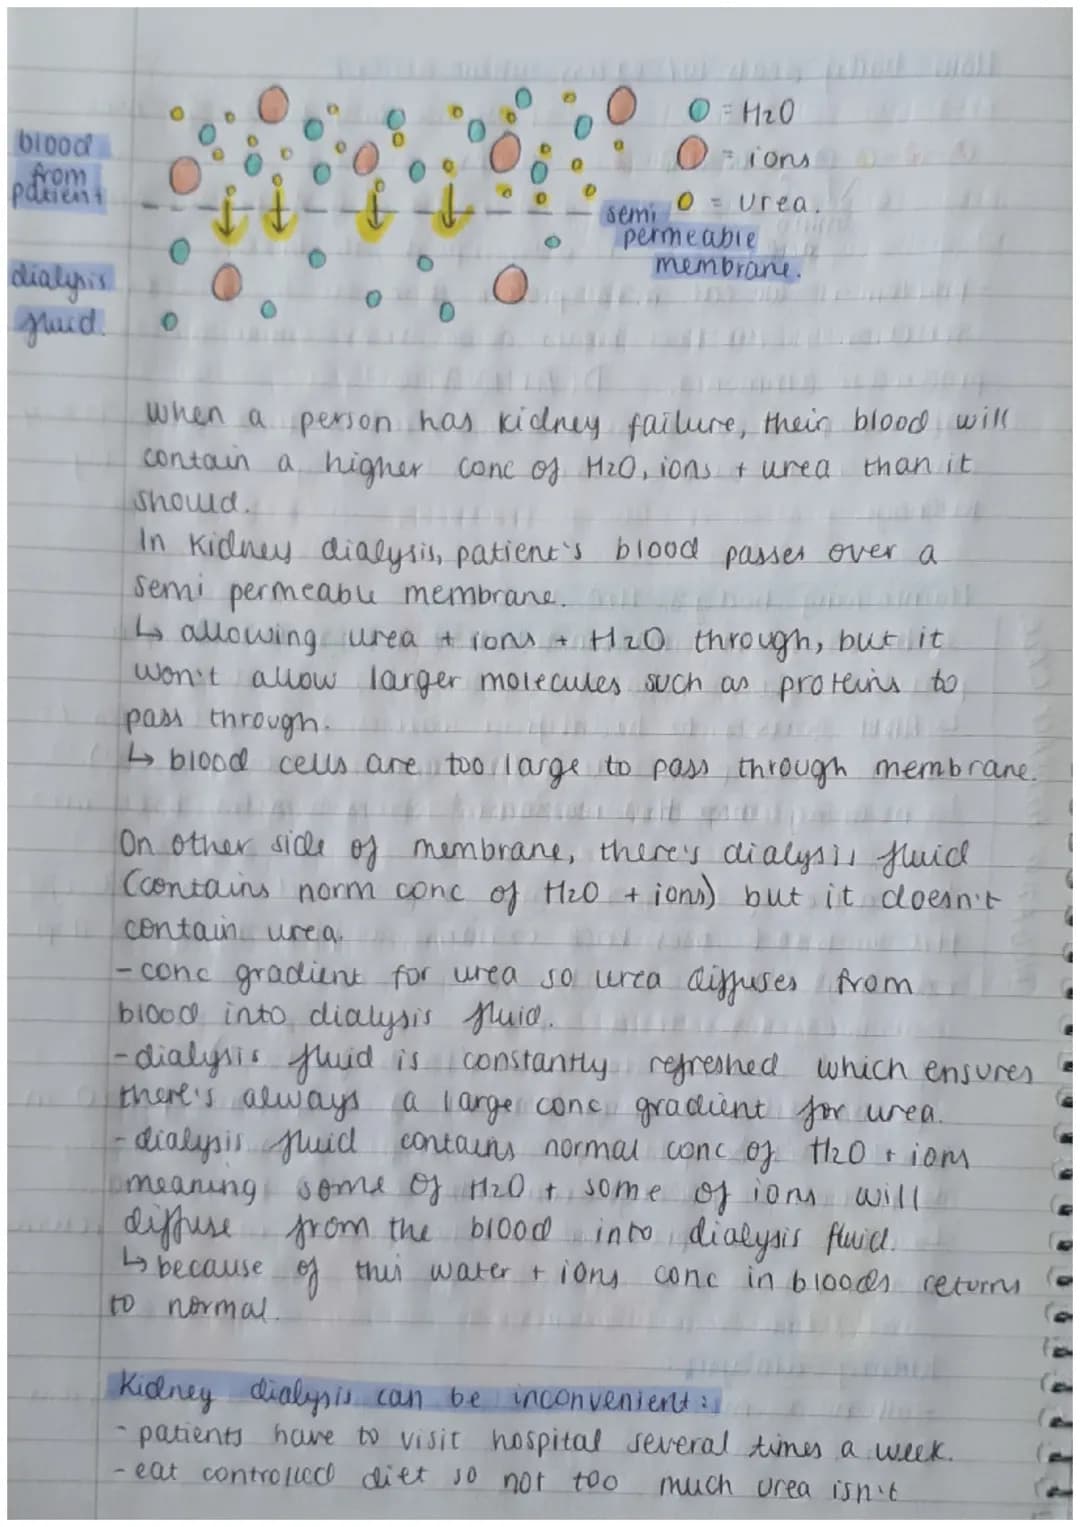 blood
from
patient
dialysis
fluid.
= H2O
= ions
= urea.
semi
permeable
membrane.
When a person has kidney failure, their blood will
contain a higher conc of H2O, ions + urea than it
should.
In Kidney dialysis, patient's blood passes over a
semi permeable membrane.
↳ allowing urea + ions + H2O through, but it
won't allow larger molecules such as proteins to
pass through.
↳ blood cells are too large to pass through membrane.
On other side of membrane, there's dialysis fluid
(contains norm conc of H2O + ions) but it doesn't
contain urea.
- conc gradient for urea so urea diffuses from
blood into dialysis fluid.
- dialysis fluid is constantly refreshed which ensures
there's always a large conc gradient for urea.
- dialysis fluid contains normal conc of H2O + ions
meaning some of H2O + some of ions will
diffuse from the blood into dialysis fluid.
↳ because of this water + ions conc in bloods returns
to normal.
Kidney dialysis can be inconvenient:
- patients have to visit hospital several times a week.
- eat controlled diet so not too much urea isn't